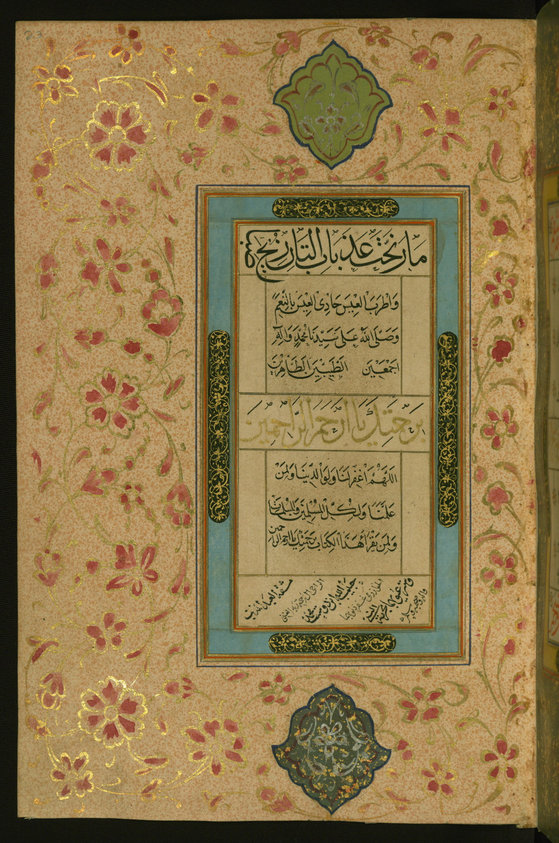 ما رنحت عذبات البان ريح
واطرب العيس حادي العيس بالنغم
وصلى الله على سيدنا محمد واله
اجمعين الطيبين الطاهرين
برحمتك يا ارحم الراحمين
اللهم اغفر لنا ولوالدينا ولمن
علمنا ولكل المسلمين والمسلمات
ولمن يقرأ هذا الكتاب برحمتك يا ارحم الراحمين